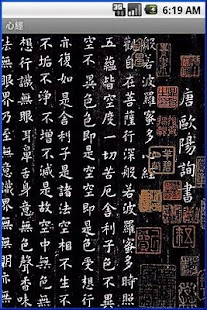 6:19 AM
心經
唐歐陽詢書
般若波羅蜜多
在菩薩行深般若波羅蜜多時照
五蘊皆空度一切苦厄舍利子色不異
空空不異色色即是空空即是色受想
亦復如是舍利子是諸法空相不生
不垢不淨不增不減是故空中無色無受
想行識無眼耳鼻舌身意無色聲香味
法無眼界乃至無意識界無無明亦